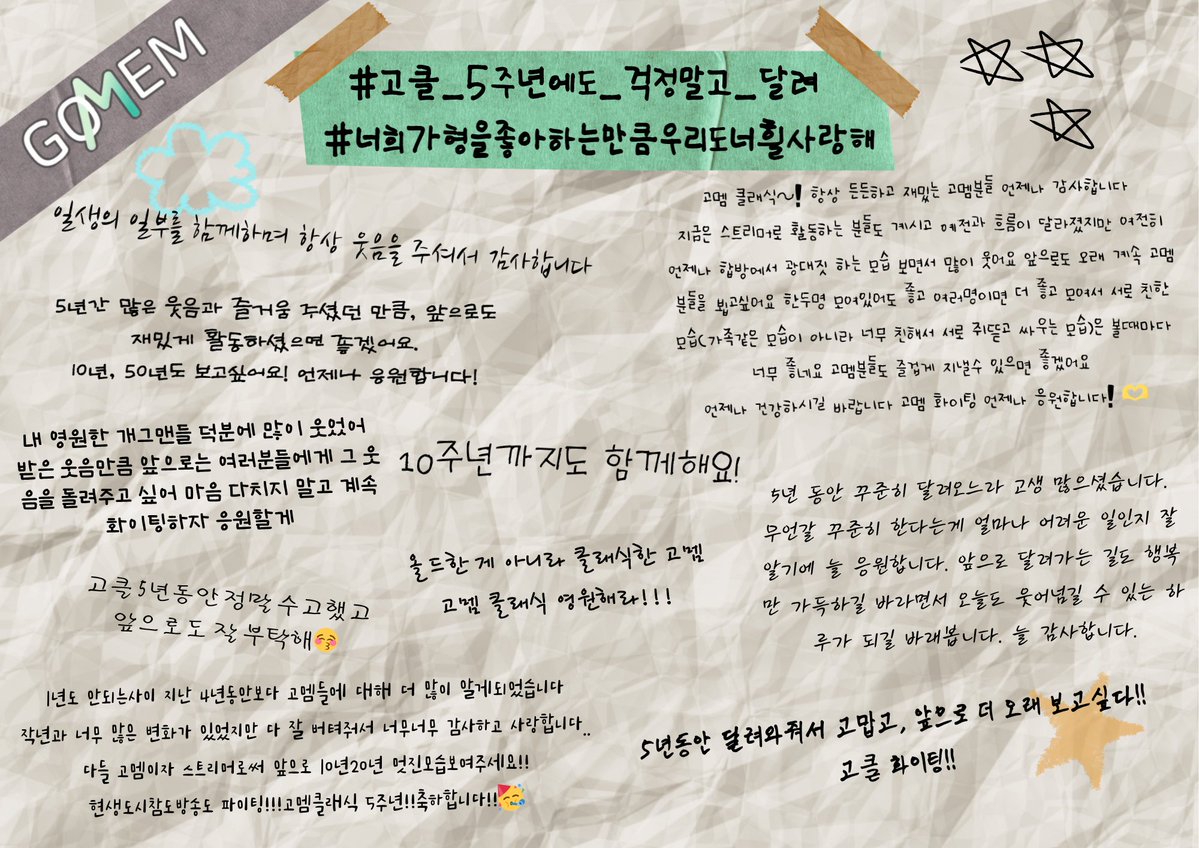 GOMEM
#고클_5주년에도_걱정말고_달려
#너희가형을좋아하는만큼우리도너흴사랑해
일생의 일부를 함께하며 항상 웃음을 주셔서 감사합니다
5년간 많은 웃음과 즐거움 주셨던 만큼, 앞으로도
재밌게 활동하셨으면 좋겠어요.
10년, 50년도 보고싶어요! 언제나 응원합니다!
고멤 클래식~! 항상 든든하고 재밌는 고멤분들 언제나 감사합니다
지금은 스트리머로 활동하는 분들도 계시고 예전과 흐름이 달라졌지만 여전히
언제나 합방에서 광대짓 하는 모습 보면서 많이 웃어요 앞으로도 오래 계속 고멤
분들을 뵙고싶어요 한두명 모여있어도 좋고 여러명이면 더 좋고 모여서 서로 친한
모습(가족같은 모습이 아니라 너무 친해서 서로 쥐뜯고 싸우는 모습)은 볼때마다
너무 좋네요 고멤분들도 즐겁게 지낼수 있으면 좋겠어요
언제나 건강하시길 바랍니다 고멤 화이팅 언제나 응원합니다! 🫶
내 영원한 개그맨들 덕분에 많이 웃었어
받은 웃음만큼 앞으로는 여러분들에게 그 웃
음을 돌려주고 싶어 마음 다치지 말고 계속
화이팅하자 응원할게
10주년까지도 함께해요!
5년 동안 꾸준히 달려오느라 고생 많으셨습니다.
무언갈 꾸준히 한다는게 얼마나 어려운 일인지 잘
알기에 늘 응원합니다. 앞으로 달려가는 길도 행복
만 가득하길 바라면서 오늘도 웃어넘길 수 있는 하
루가 되길 바래봅니다. 늘 감사합니다.
올드한 게 아니라 클래식한 고멤
고멤 클래식 영원해라!!!
고클 5년동안 정말 수고했고
앞으로도 잘 부탁해😚
1년도 안되는사이 지난 4년동안보다 고멤들에 대해 더 많이 알게되었습니다
작년과 너무 많은 변화가 있었지만 다 잘 버텨줘서 너무너무 감사하고 사랑합니다..
다들 고멤이자 스트리머로써 앞으로 10년20년 멋진모습보여주세요!!
현생도시참도방송도 파이팅!!!고멤클래식 5주년!!축하합니다!!🥳
5년동안 달려와줘서 고맙고, 앞으로 더 오래 보고싶다!!
고클 화이팅!!